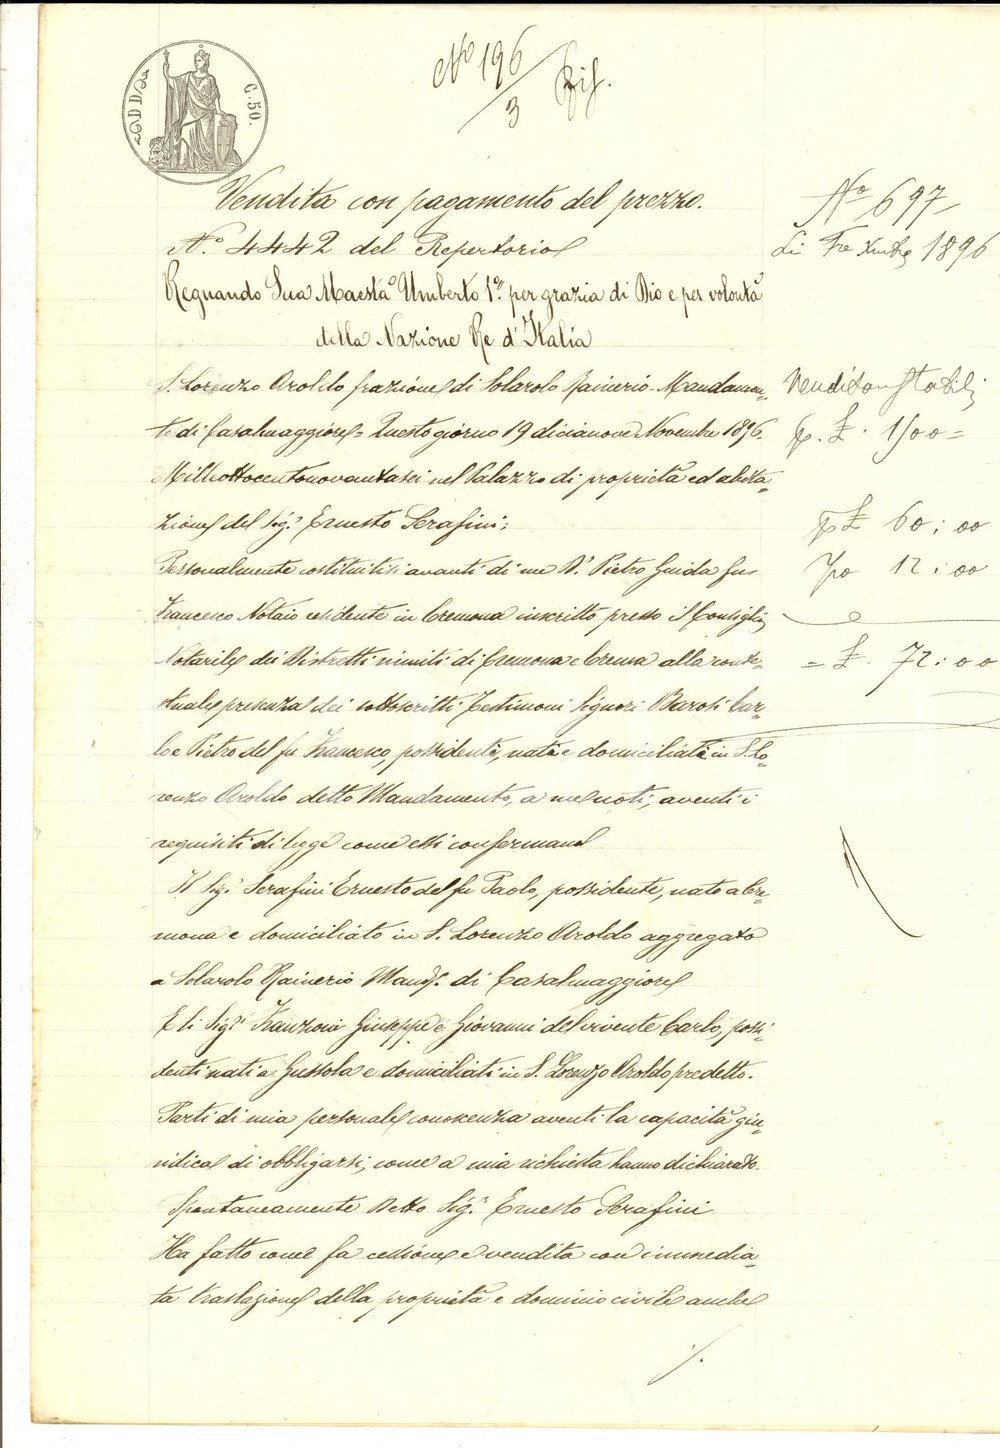 No 196/3 Rif.
C. 50.
Vendita con pagamento del prezzo.
No 697
N.o 4442 del Repertorio
li Tre 1896
Regnando Sua Maestà Umberto 1.o per grazia di Dio e per volontà
della Nazione Re d'Italia
S. Lorenzo Aroldo frazione di Solarolo Rainerio - Mandamen=
Vendita Stabili
to di Casalmaggiore = Questo giorno 19 diciannove Novembre 1896.
p. £. 1500=
Milleottocentonovantasei nel Palazzo di proprietà ed abita=
zione del Sig.r Ernesto Serafini:
p £ 60:00
Personalmente costituitisi avanti di me D.r Pietro Guida fu
12:00
Francesco Notaio residente in Cremona inscritto presso il Consiglio
Notarile dei Distretti riuniti di Cremona e Crema alla conte=
= £. 72:00
stuale presenza dei sottoscritti Testimoni Signori Barosi Car=
lo e Pietro del fu Francesco, possidenti, nati e domiciliati in S. Lo=
renzo Aroldo detto Mandamento, a me noti, aventi i
requisiti di legge come essi confermano
Il Sig.r Serafini Ernesto del fu Paolo, possidente, nato a Cre=
mona e domiciliato in S. Lorenzo Aroldo aggregato
a Solarolo Rainerio Mand.o di Casalmaggiore
E li Sig.ri Franzoni Giuseppe e Giovanni del vivente Carlo, possi=
denti nati a Gussola e domiciliati in S. Lorenzo Aroldo predetto.
Parti di mia personale conoscenza aventi la capacità giu=
ridica di obbligarsi, come a mia richiesta hanno dichiarato.
Spontaneamente detto Sig.r Ernesto Serafini
Ha fatto come fa cessione e vendita con immedia=
ta traslazione della proprietà e dominio civile anche